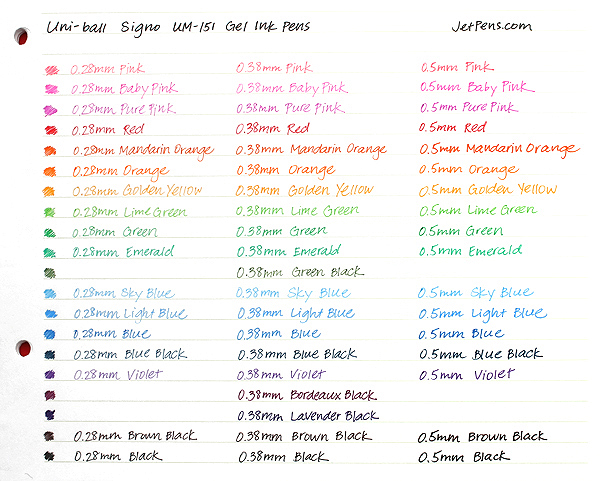 Uni-ball Signo UM-151 Gel Ink Pens JetPens.com
0.28mm Pink 0.38mm Pink 0.5mm Pink
0.28mm Baby Pink 0.38mm Baby Pink 0.5mm Baby Pink
0.28mm Pure Pink 0.38mm Pure Pink 0.5mm Pure Pink
0.28mm Red 0.38mm Red 0.5mm Red
0.28mm Mandarin Orange 0.38mm Mandarin Orange 0.5mm Mandarin Orange
0.28mm Orange 0.38mm Orange 0.5mm Orange
0.28mm Golden Yellow 0.38mm Golden Yellow 0.5mm Golden Yellow
0.28mm Lime Green 0.38mm Lime Green 0.5mm Lime Green
0.28mm Green 0.38mm Green 0.5mm Green
0.28mm Emerald 0.38mm Emerald 0.5mm Emerald
0.38mm Green Black
0.28mm Sky Blue 0.38mm Sky Blue 0.5mm Sky Blue
0.28mm Light Blue 0.38mm Light Blue 0.5mm Light Blue
0.28mm Blue 0.38mm Blue 0.5mm Blue
0.28mm Blue Black 0.38mm Blue Black 0.5mm Blue Black
0.28mm Violet 0.38mm Violet 0.5mm Violet
0.38mm Bordeaux Black
0.38mm Lavender Black
0.28mm Brown Black 0.38mm Brown Black 0.5mm Brown Black
0.28mm Black 0.38mm Black 0.5mm Black